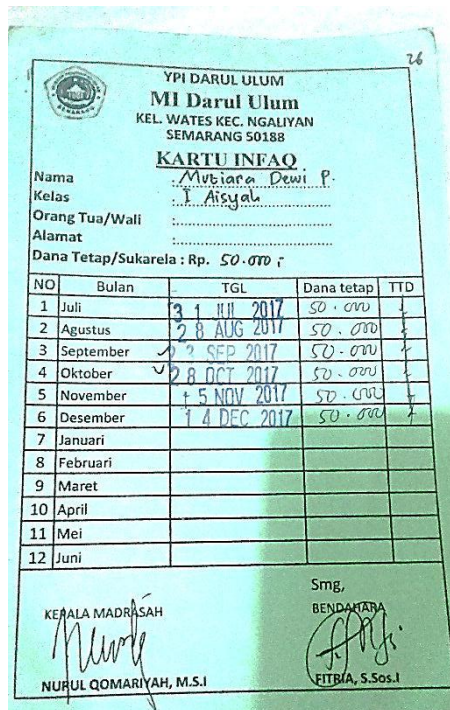 26
YPI DARUL ULUM
MI Darul Ulum
KEL. WATES KEC. NGALIYAN
SEMARANG 50188
KARTU INFAQ
Nama : Mutiara Dewi P.
Kelas : I Aisyah
Orang Tua/Wali :
Alamat :
Dana Tetap/Sukarela : Rp. 50.000,-
NO Bulan TGL Dana tetap TTD
1 Juli 31 JUL 2017 50.000
2 Agustus 28 AUG 2017 50.000
3 September 23 SEP 2017 50.000
4 Oktober 28 OCT 2017 50.000
5 November 15 NOV 2017 50.000
6 Desember 14 DEC 2017 50.000
7 Januari
8 Februari
9 Maret
10 April
11 Mei
12 Juni
Smg,
KEPALA MADRASAH BENDAHARA
NURUL QOMARIYAH, M.S.I FITRIA, S.Sos.I